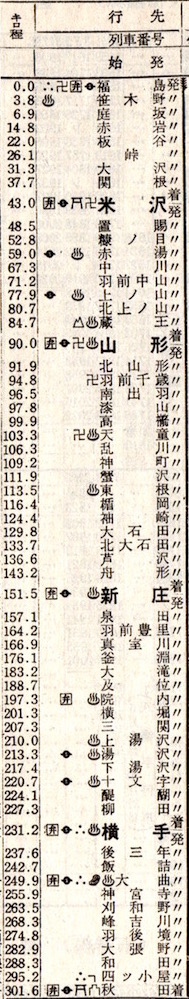 キロ程 行先
列車番号
始発
0.0 ∴卍弁福島発
3.8 ♨笹木野〃
6.9 庭坂〃
14.8 赤岩〃
22.0 板谷〃
26.1 峠〃
31.3 大沢〃
37.7 関根〃
43.0 弁⛩卍米沢着発
48.5 置賜〃
52.8 糠ノ目〃
59.0 ♨赤湯〃
67.3 中川〃
71.2 羽前中山〃
77.9 ♨上ノ山〃
80.7 北上ノ山〃
84.7 △♨蔵王〃
90.0 弁卍♨山形着発
91.9 北山形〃
94.8 卍羽前千歳〃
96.5 南出羽〃
97.8 漆山〃
99.9 高擶〃
103.3 卍♨天童〃
106.3 乱川〃
109.2 神町〃
111.9 蟹沢〃
113.5 ♨東根〃
116.4 楯岡〃
124.4 袖崎〃
129.8 大石田〃
133.7 北大石田〃
136.6 芦沢〃
143.2 舟形〃
151.5 弁♨新庄着発
157.1 泉田〃
164.2 羽前豊里〃
166.9 真室川〃
176.1 釜淵〃
183.2 大滝〃
188.7 及位〃
197.3 弁♨院内〃
201.3 横堀〃
207.3 三関〃
210.0 ♨上湯沢〃
213.3 ♨湯沢〃
217.4 下湯沢〃
220.7 ♨十文字〃
224.1 醍醐〃
227.3 柳田〃
231.2 弁∴♨横手着発
237.6 後三年〃
242.7 飯詰〃
249.9 弁∴♨大曲〃
255.9 神宮寺〃
263.5 刈和野〃
268.3 峰吉川〃
274.8 羽後境〃
282.9 大張野〃
288.3 和田〃
295.6 ∴四ッ小屋〃
301.6 弁⛩卍秋田着